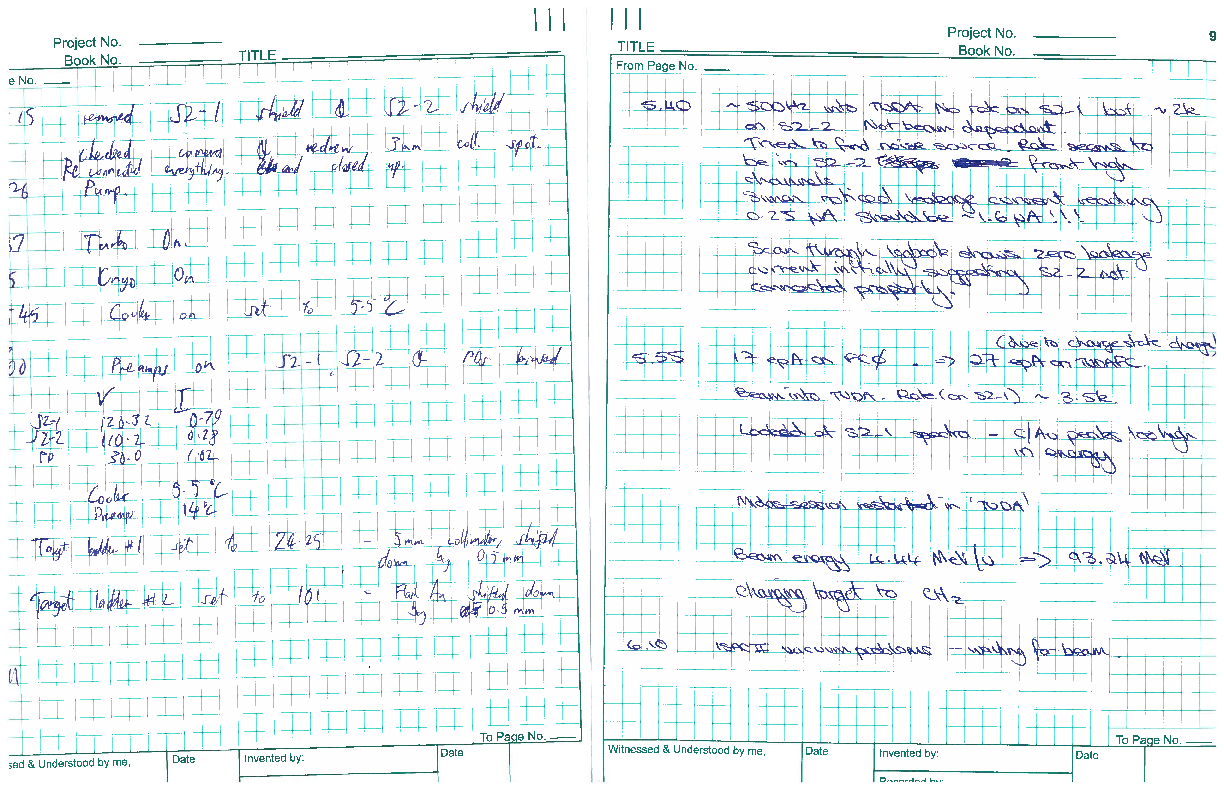 Project No.
Book No.
TITLE
e No.
15 removed S2-1 shield & S2-2 shield
Checked camera & redrew 3mm coll. spot.
Reconnected everything. and closed up
26 Pump.
57 Turbo On.
5 Cryo On
45 Cooler on set to 5.5°C
00 Preamps on S2-1, S2-2 & PDs biased
V I
S2-1 120.32 0.79
S2-2 110.2 0.28
PD 30.0 1.02
Cooler 5.5°C
Preamp 14°C
Target ladder #1 set to 24.25 - 5mm collimator, shifted
down by 0.5 mm
Target ladder #2 set to 101 - Flat Au shifted down
by 0.5 mm
To Page No.
sed & Understood by me,
Date
Invented by:
Date
Project No.
Book No.
9
TITLE
From Page No.
5.40 ~ 500Hz into TUDA. No rate on S2-1 but ~ 2k
on S2-2. Not beam dependent.
Tried to find noise source. Rate seems to
be in S2-2 front high
channels.
Simon noticed leakage current reading
0.25 µA. Should be ~1.6 µA!!!
Scan through logbook shows zero leakage
current initially suggesting S2-2 not
connected properly.
(due to charge state change)
5.55 17 epA on FCØ. => 27 epA on TUDAFC.
Beam into TUDA. Rate (on S2-1) ~ 3.5k
Looked at S2-1 spectra - C/Au peaks too high
in energy
Midas session restarted in 'TUDA'
Beam energy 4.44 MeV/u => 93.24 MeV
Changing target to CH2
6.10 ISAC II vacuum problems - waiting for beam.
To Page No.
Witnessed & Understood by me,
Date
Invented by:
Date
Recorded by: